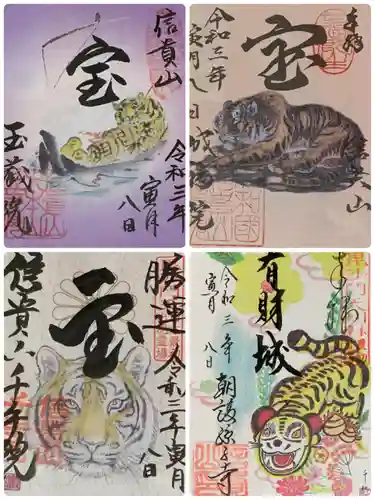 信貴山
宝
令和三年
寅月
八日
玉蔵院
奉拝
宝
令和三年
寅月八日
成福院
信貴山
勝運
宝
令和三年寅月
八日
信貴山千手院
奉拝
有財城
令和三年
寅月
八日
朝護孫子寺